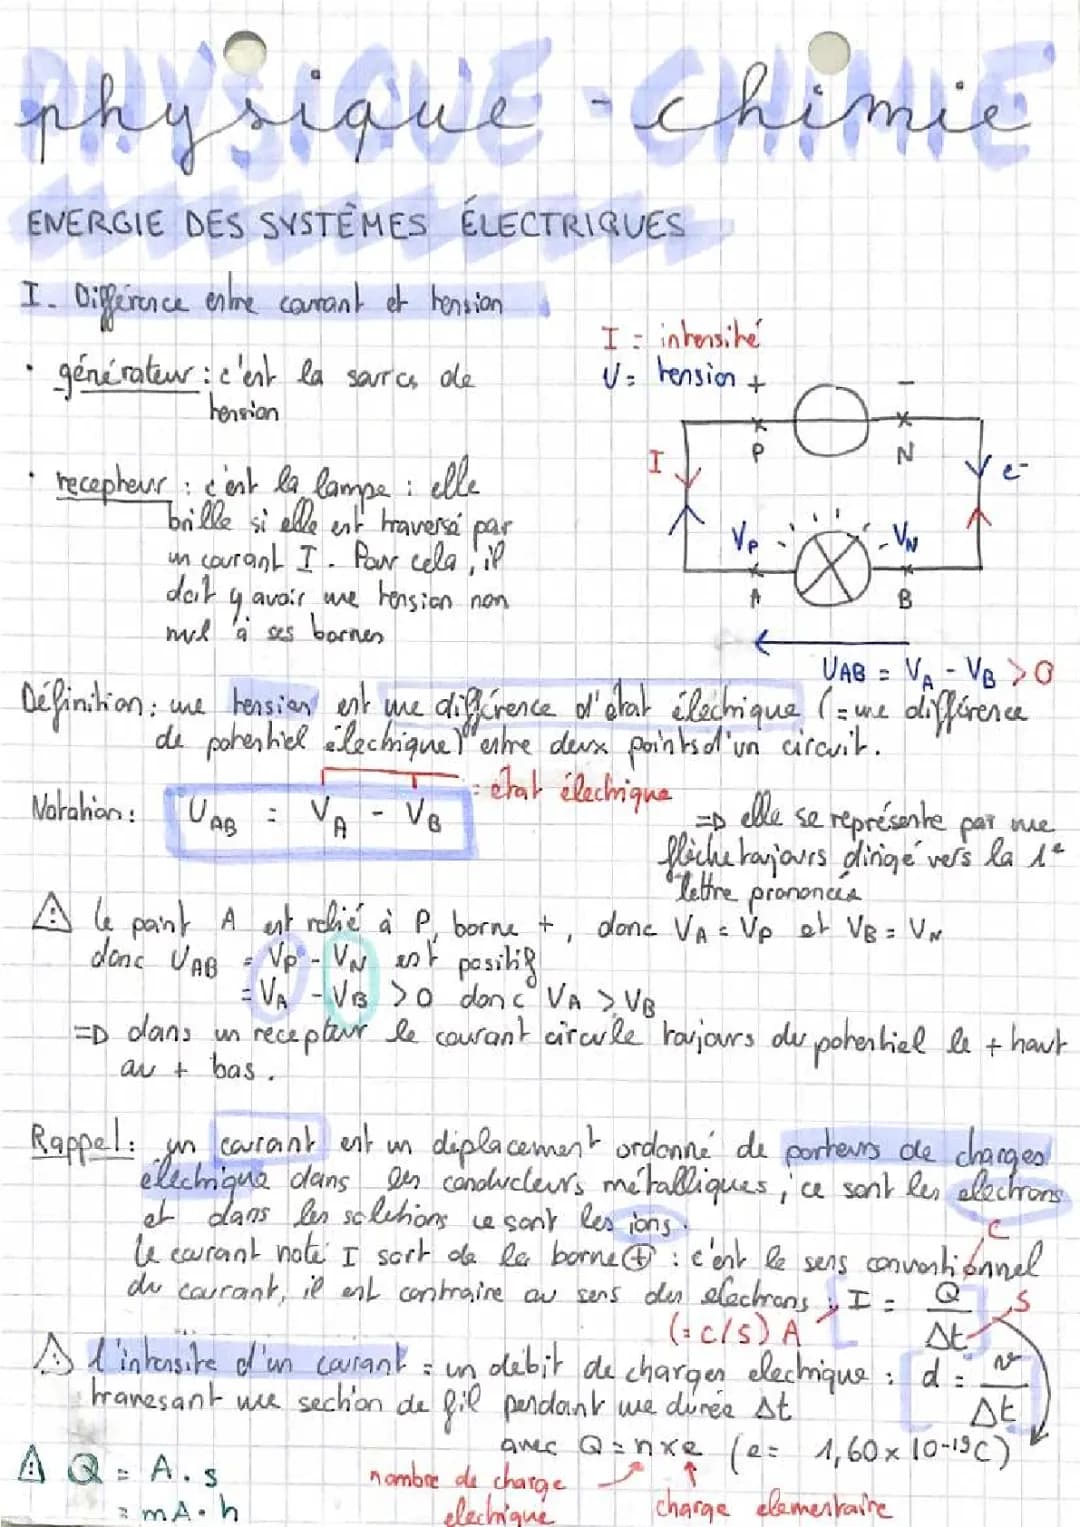 physique - chimie
PHYSIQUE - CHIMIE
ENERGIE DES SYSTÊMES ÉLECTRIQUES
I. Différence entre courant et tension
• générateur : c'est la source de
tension
I = intensité
U = tension
+ -
P N
I e-
VP - VN
A B
UAB = VA - VB > 0
• recepteur : c'est la lampe : elle
brille si elle est traversé par
un courant I. Pour cela, il
doit y avoir une tension non
nul à ses bornes
Définition : une tension est une différence d'état électrique (= une différence
de potentiel électrique) entre deux points d'un circuit.
= état électrique
Notation : UAB = VA - VB
=D elle se représente par une
flèche toujours dirigé vers la 1e
lettre prononcée
⚠ le point A est relié à P, borne +, donc VA = VP et VB = VN
donc UAB = VP - VN est positif
= VA - VB > 0 donc VA > VB
=D dans un recepteur le courant circule toujours du potentiel le + haut
au + bas.
Rappel : un courant est un déplacement ordonné de porteurs de charges
électrique dans les conducteurs métalliques, ce sont les electrons
et dans les solutions ce sont les ions.
le courant noté I sort de la borne ⊕ : c'est le sens conventionnel
du courant, il est contraire au sens des electrons : I = Q/Δt
C
S
(= C/S) A
⚠ l'intensite d'un courant = un debit de charges electrique : d = v/Δt
traversant une section de fil pendant une durée Δt
avec Q = n x e (e = 1,60 x 10-19 C)
⚠ Q = A.s
= mA.h
nombre de charge
electrique
charge elementaire